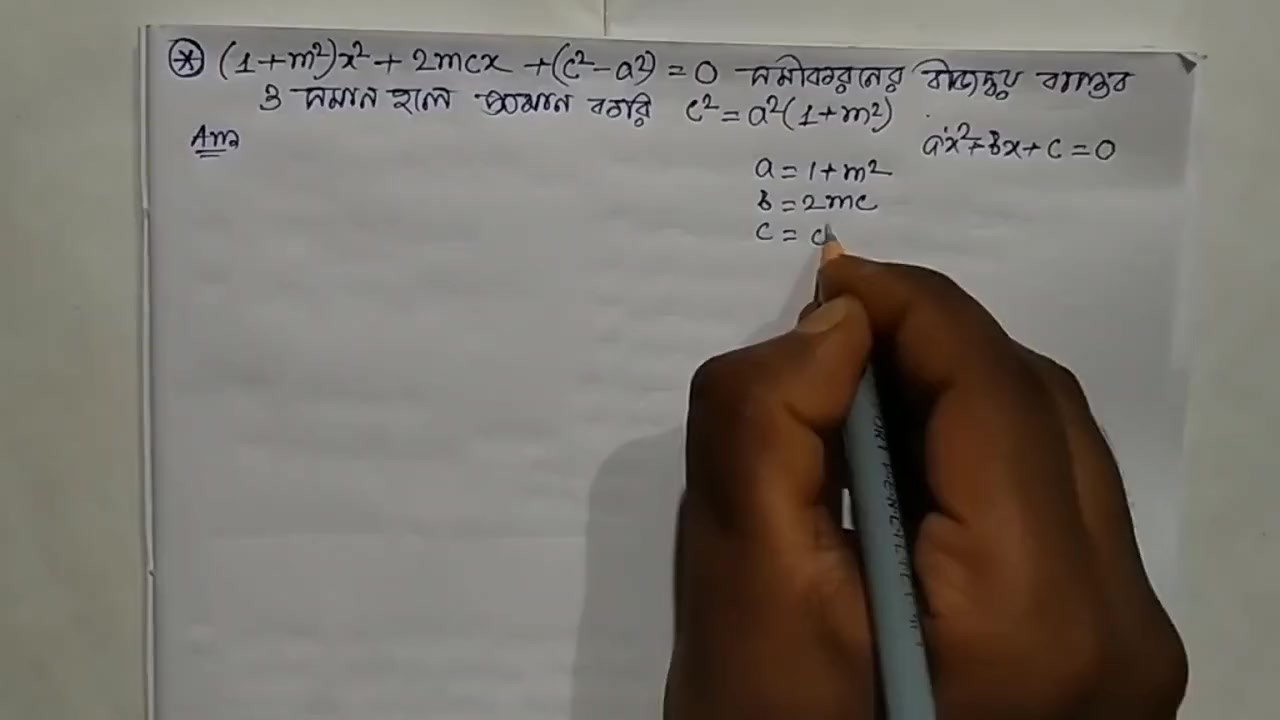 (1+m²)x² + 2mcx + (c²-a²) = 0 সমীকরনের বীজদ্বয় বাস্তব
ও সমান হলে প্রমান করি c² = a²(1+m²)
Ans
ax²+bx+c=0
a = 1+m²
b = 2mc
c = c